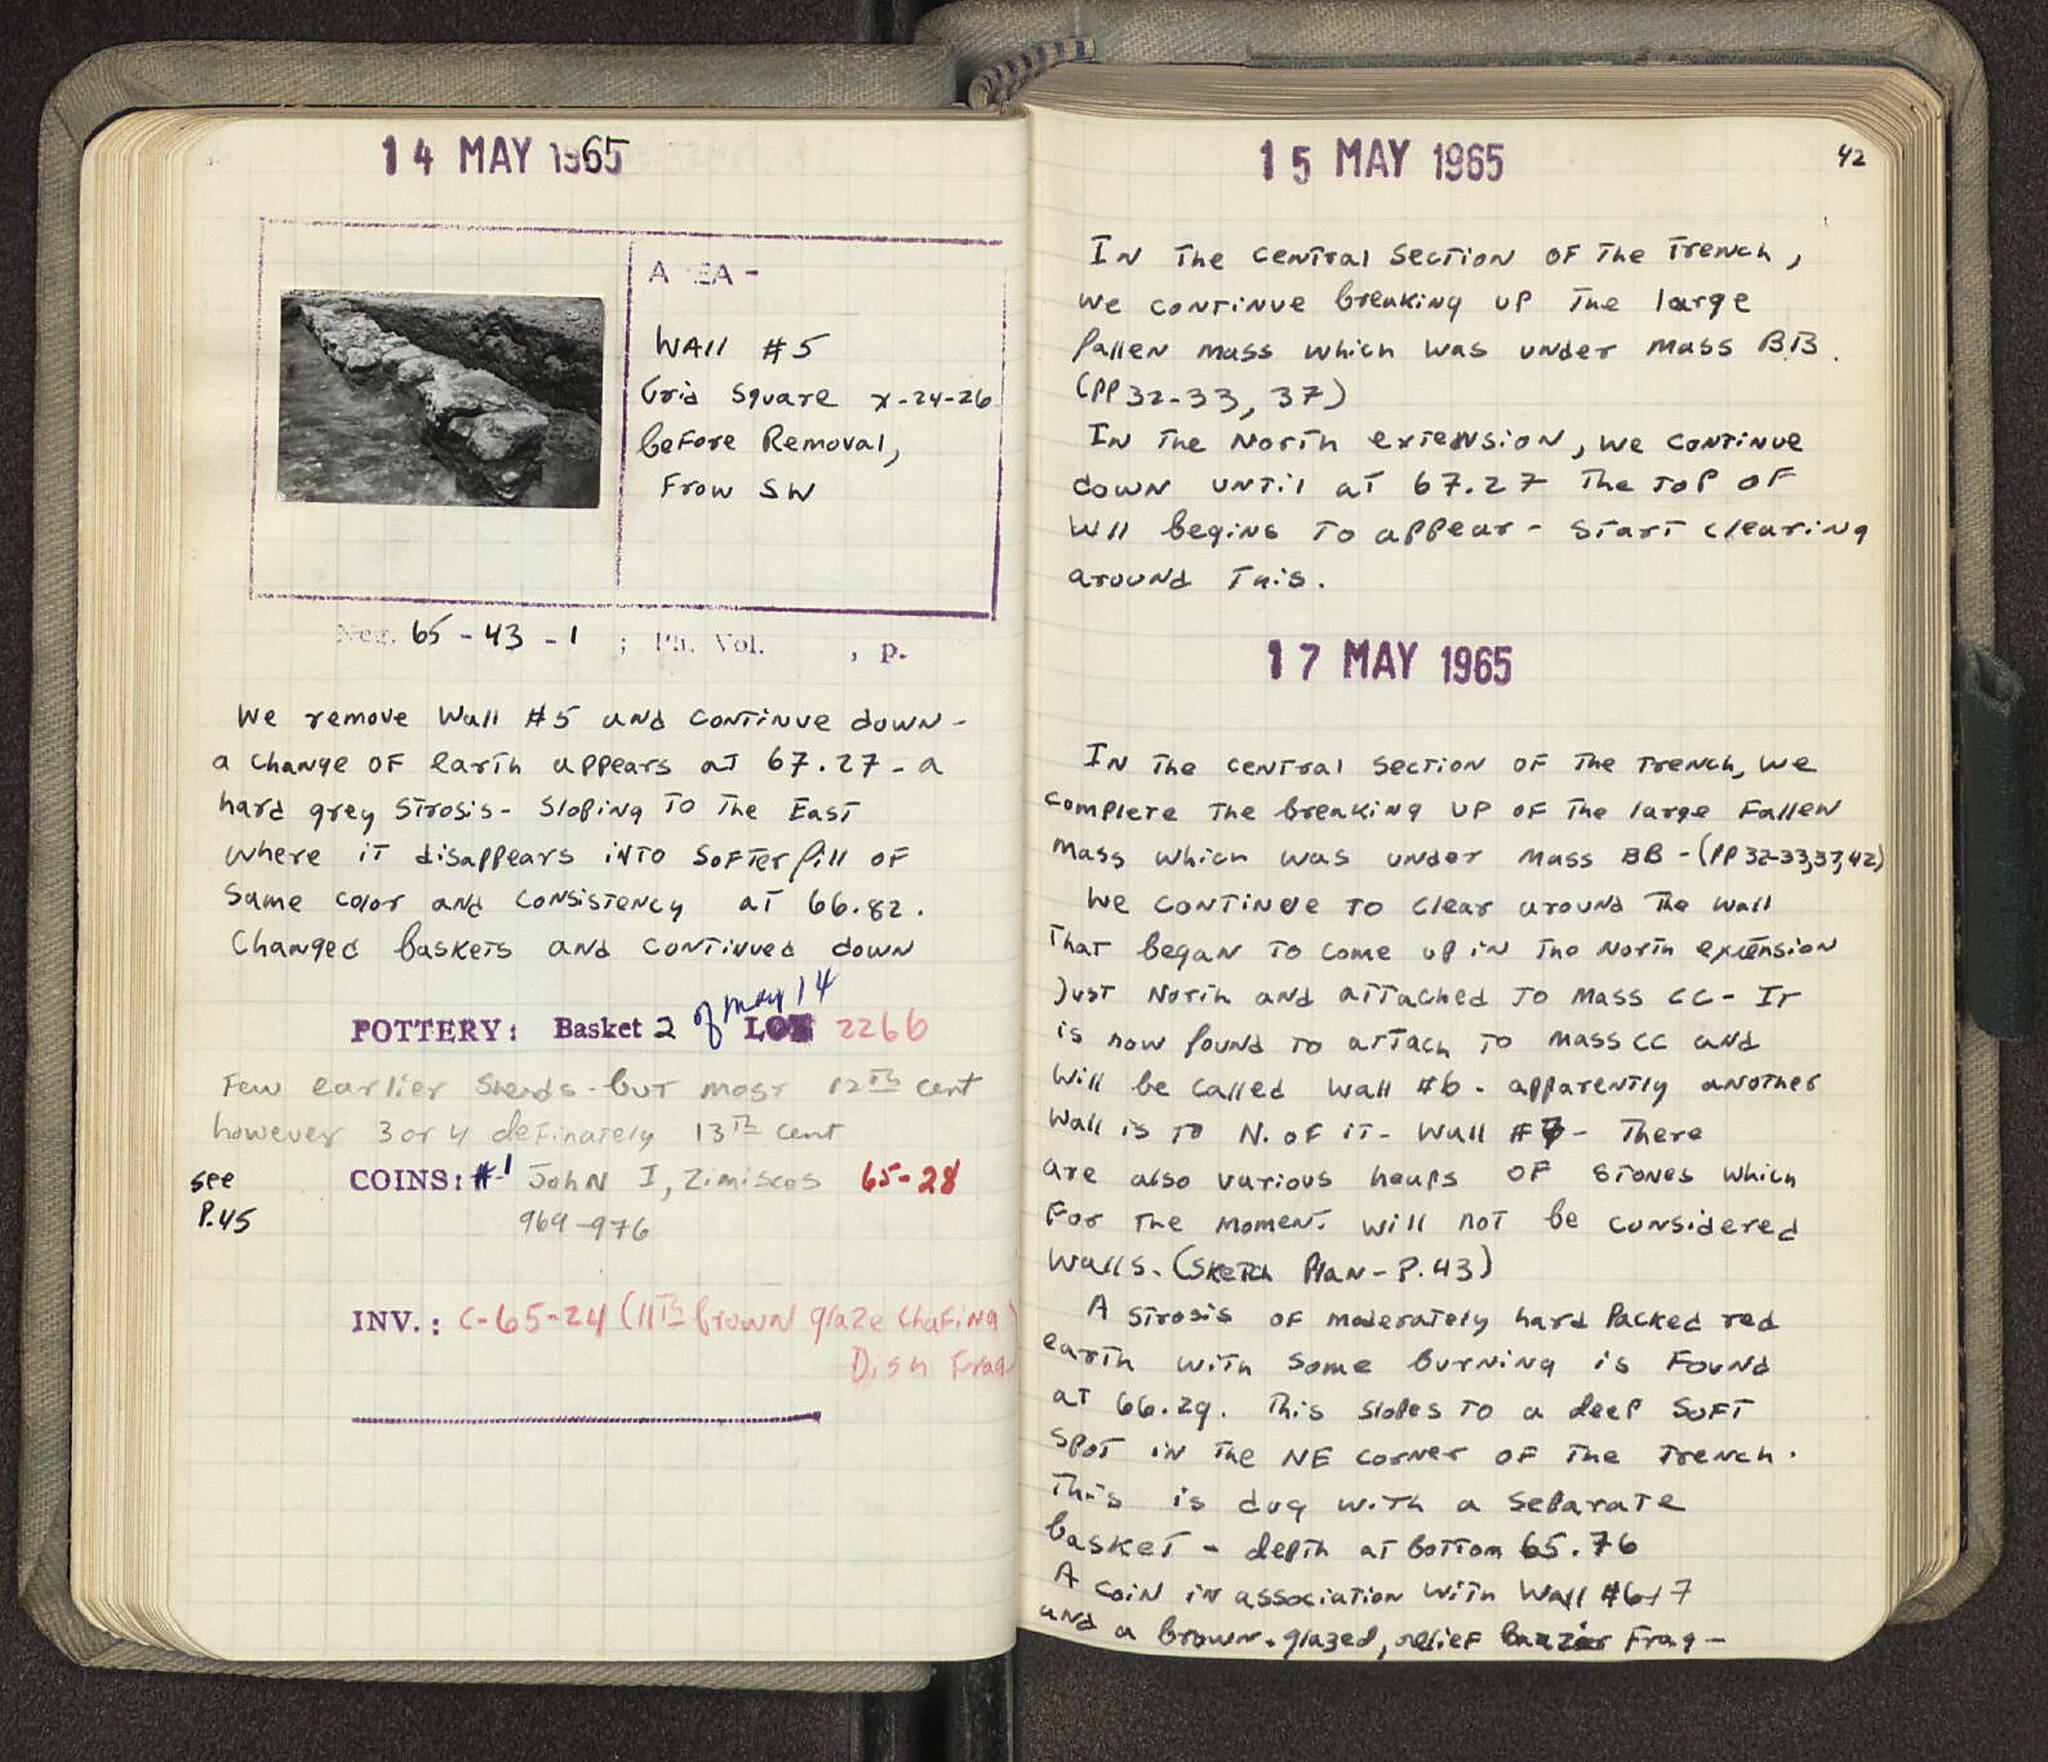 14 MAY 1965
A EA -
Wall #5
Grid Square x-24-26
before Removal,
From SW
Neg. 65-43-1 ; Ph. Vol. , p.
We remove Wall #5 and continue down -
a change of earth appears at 67.27 - a
hard grey strosis - sloping to the East
where it disappears into softer fill of
same color and consistency at 66.82.
Changed baskets and continued down
POTTERY: Basket 2 of May 14 LOT 2266
Few earlier sherds - but most 12th cent
however 3 or 4 definately 13th cent
see
P.45
COINS: #1 John I, Zimisces 65-28
969-976
INV.: C-65-24 (11th brown glaze Chafing
Dish Frag
15 MAY 1965
42
In the central section of the trench,
we continue breaking up the large
fallen mass which was under mass BB.
(PP 32-33, 37)
In the North extension, we continue
down until at 67.27 the top of
wll begins to appear - start clearing
around this.
17 MAY 1965
In the central section of the trench, we
complete the breaking up of the large fallen
mass which was under mass BB - (PP 32-33,37,42)
We continue to clear around the wall
that began to come up in the North extension
just North and attached to mass CC - It
is now found to attach to mass CC and
will be called wall #6 - apparently another
wall is to N. of it - wall #7 - There
are also various heaps of stones which
for the moment will not be considered
walls. (Sketch Plan - P.43)
A strosis of moderately hard packed red
earth with some burning is found
at 66.29. This slopes to a deep soft
spot in the NE corner of the trench.
This is dug with a separate
basket - depth at bottom 65.76
A coin in association with Wall #6+7
and a brown-glazed, relief brazier frag-